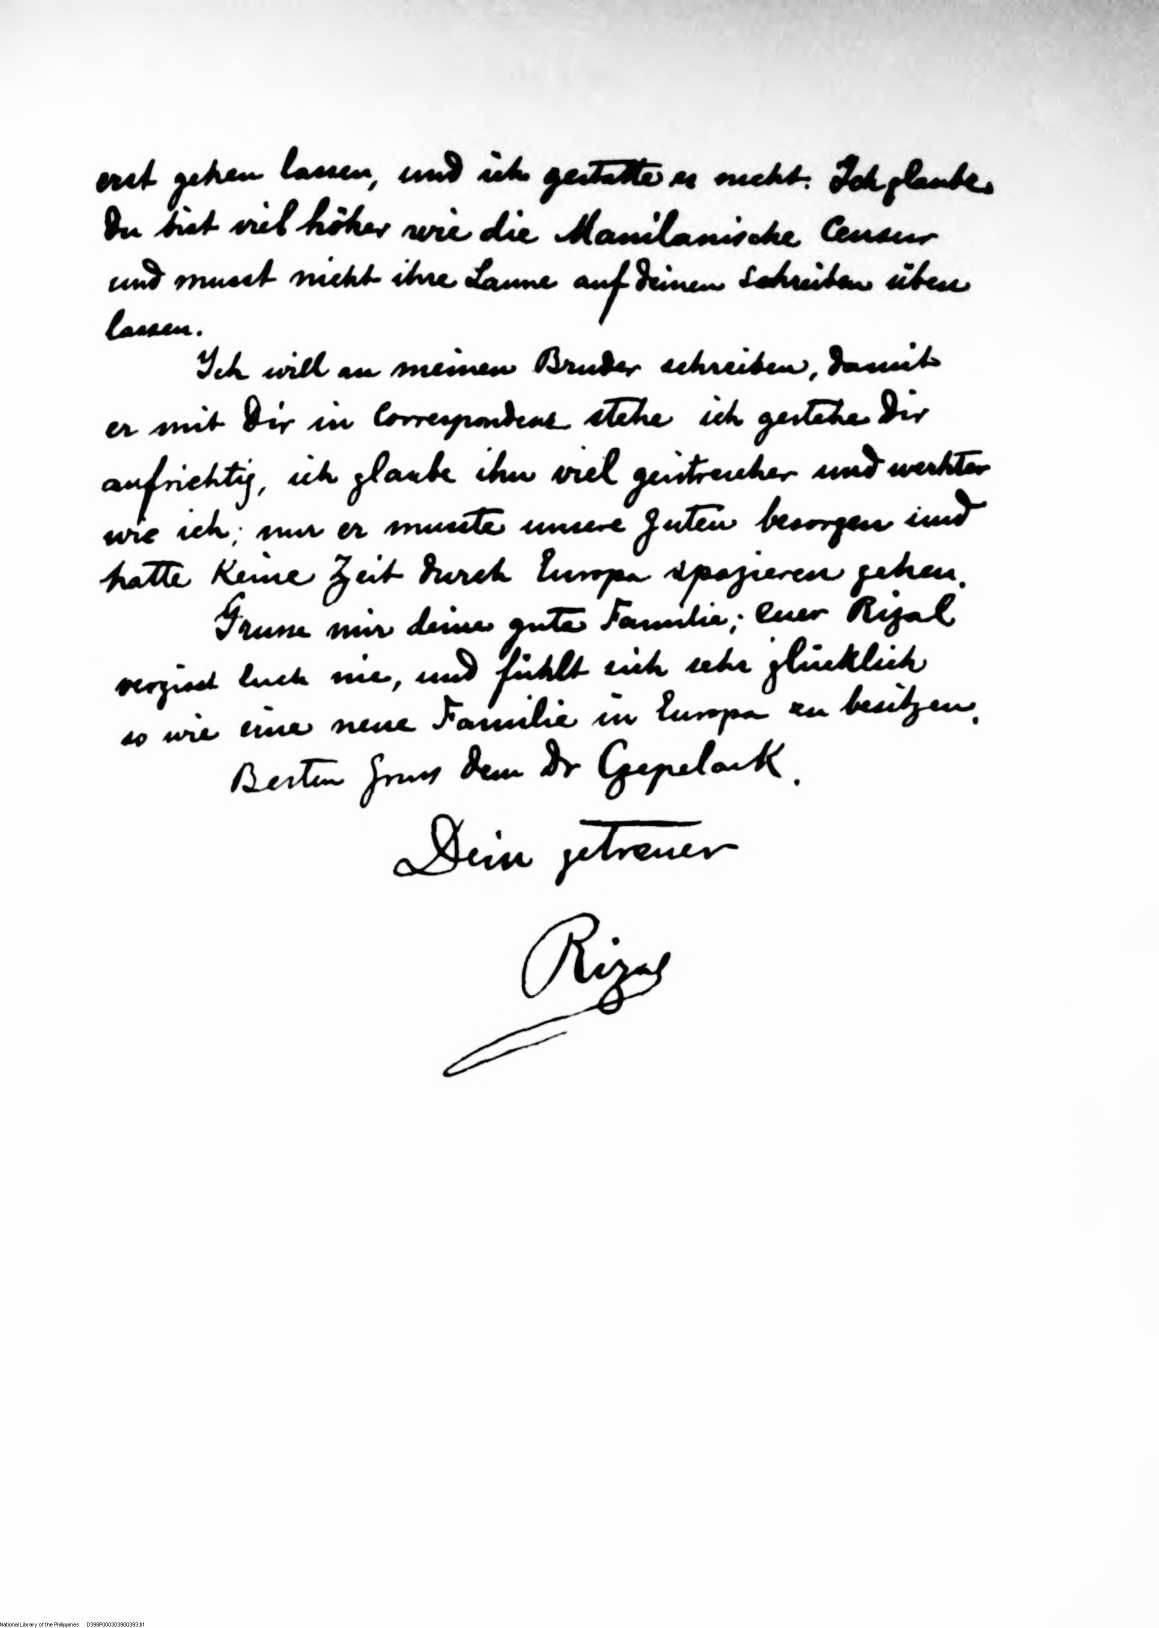 erst gehen lassen, und ich gestatte es nicht. Ich glaube,
du bist viel höher wie die Manilanische Censur
und musst nicht ihre Laune auf deinen Schreiben üben
lassen.
Ich will an meinen Bruder schreiben, damit
er mit Dir in Correspondenz stehe ich gestehe Dir
aufrichtig, ich glaube ihn viel geistreicher und werhter
wie ich; nur er musste unsere Guten besorgen und
hatte keine Zeit durch Europa spazieren gehen.
Grusse mir deine gute Familie; Euer Rizal
vergisst Euch nie, und fühlt sich sehr glücklich
so wie eine neue Familie in Europa zu besitzen.
Besten Gruss dem Dr Czepelack.
Dein getreuer
Rizal
National Library of the Philippines D398P000303900393.tif